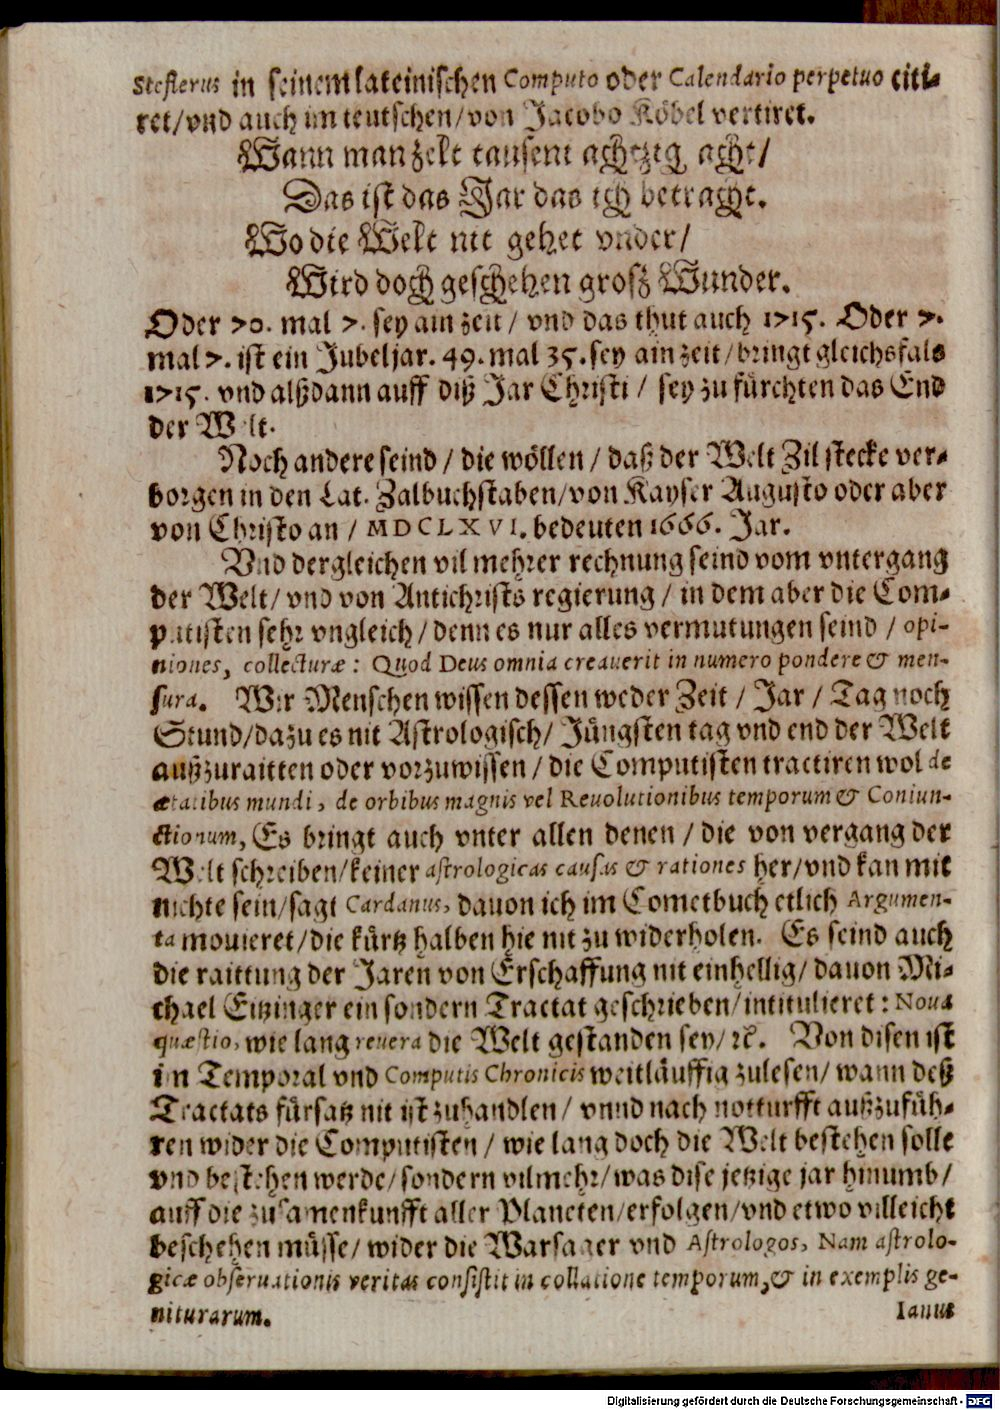 Steflerus in seinem lateinischen Computo oder Calendario perpetuo citi-
ret/vnd auch im teutschen/von Jacobo Köbel vertiret.
Wann man zelt tausent achtzig acht/
Das ist das Jar das ich betracht.
Wo die Welt nit gehet vnder/
Wird doch geschehen grosz Wunder.
Oder 70. mal 7. sey ain zeit / vnd das thut auch 1715. Oder 7.
mal 7. ist ein Jubeljar. 49. mal 35. sey ain zeit/bringt gleichsfals
1715. vnd alßdann auff diß Jar Christi / sey zu fürchten das End
der Welt.
Noch andere seind / die wöllen / daß der Welt Zil stecke ver-
borgen in den Lat. Zalbuchstaben/von Kayser Augusto oder aber
von Christo an / MDCLXVI. bedeuten 1666. Jar.
Vnd dergleichen vil mehrer rechnung seind vom vntergang
der Welt/ vnd von Antichrists regierung / in dem aber die Com-
putisten sehr vngleich / denn es nur alles vermutungen seind / opi-
niones, collecturæ: Quod Deus omnia creauerit in numero pondere & men-
sura. Wir Menschen wissen dessen weder Zeit / Jar / Tag noch
Stund/dazu es nit Astrologisch/ Jüngsten tag vnd end der Welt
außzuraitten oder vorzuwissen / die Computisten tractiren wol de
ætatibus mundi, de orbibus magnis vel Reuolutionibus temporum & Coniun-
ctionum, Es bringt auch vnter allen denen / die von vergang der
Welt schreiben/keiner astrologicas causas & rationes her/vnd kan mit
nichte sein/sagt Cardanus, dauon ich im Cometbuch etlich Argumen-
ta mouieret/die kürtz halben hie nit zu widerholen. Es seind auch
die raittung der Jaren von Erschaffung nit einhellig/ dauon Mi-
chael Eitzinger ein sondern Tractat geschrieben/intitulieret: Noua
quæstio, wie lang reuera die Welt gestanden sey/ ꝛc. Von disen ist
im Temporal vnd Computis Chronicis weitläuffig zulesen/ wann deß
Tractats fürsatz nit ist zuhandlen / vnnd nach notturfft außzufüh-
ren wider die Computisten / wie lang doch die Welt bestehen solle
vnd bestehen werde/ sondern vilmehr/was dise jetzige jar hinumb/
auff die zusamenkunfft aller Planeten/erfolgen/vnd etwo villeicht
beschehen müsse/ wider die Warsager vnd Astrologos, Nam astrolo-
gicæ obseruationis veritas consistit in collatione temporum, & in exemplis ge-
niturarum.
Ianus
Digitalisierung gefördert durch die Deutsche Forschungsgemeinschaft - DFG